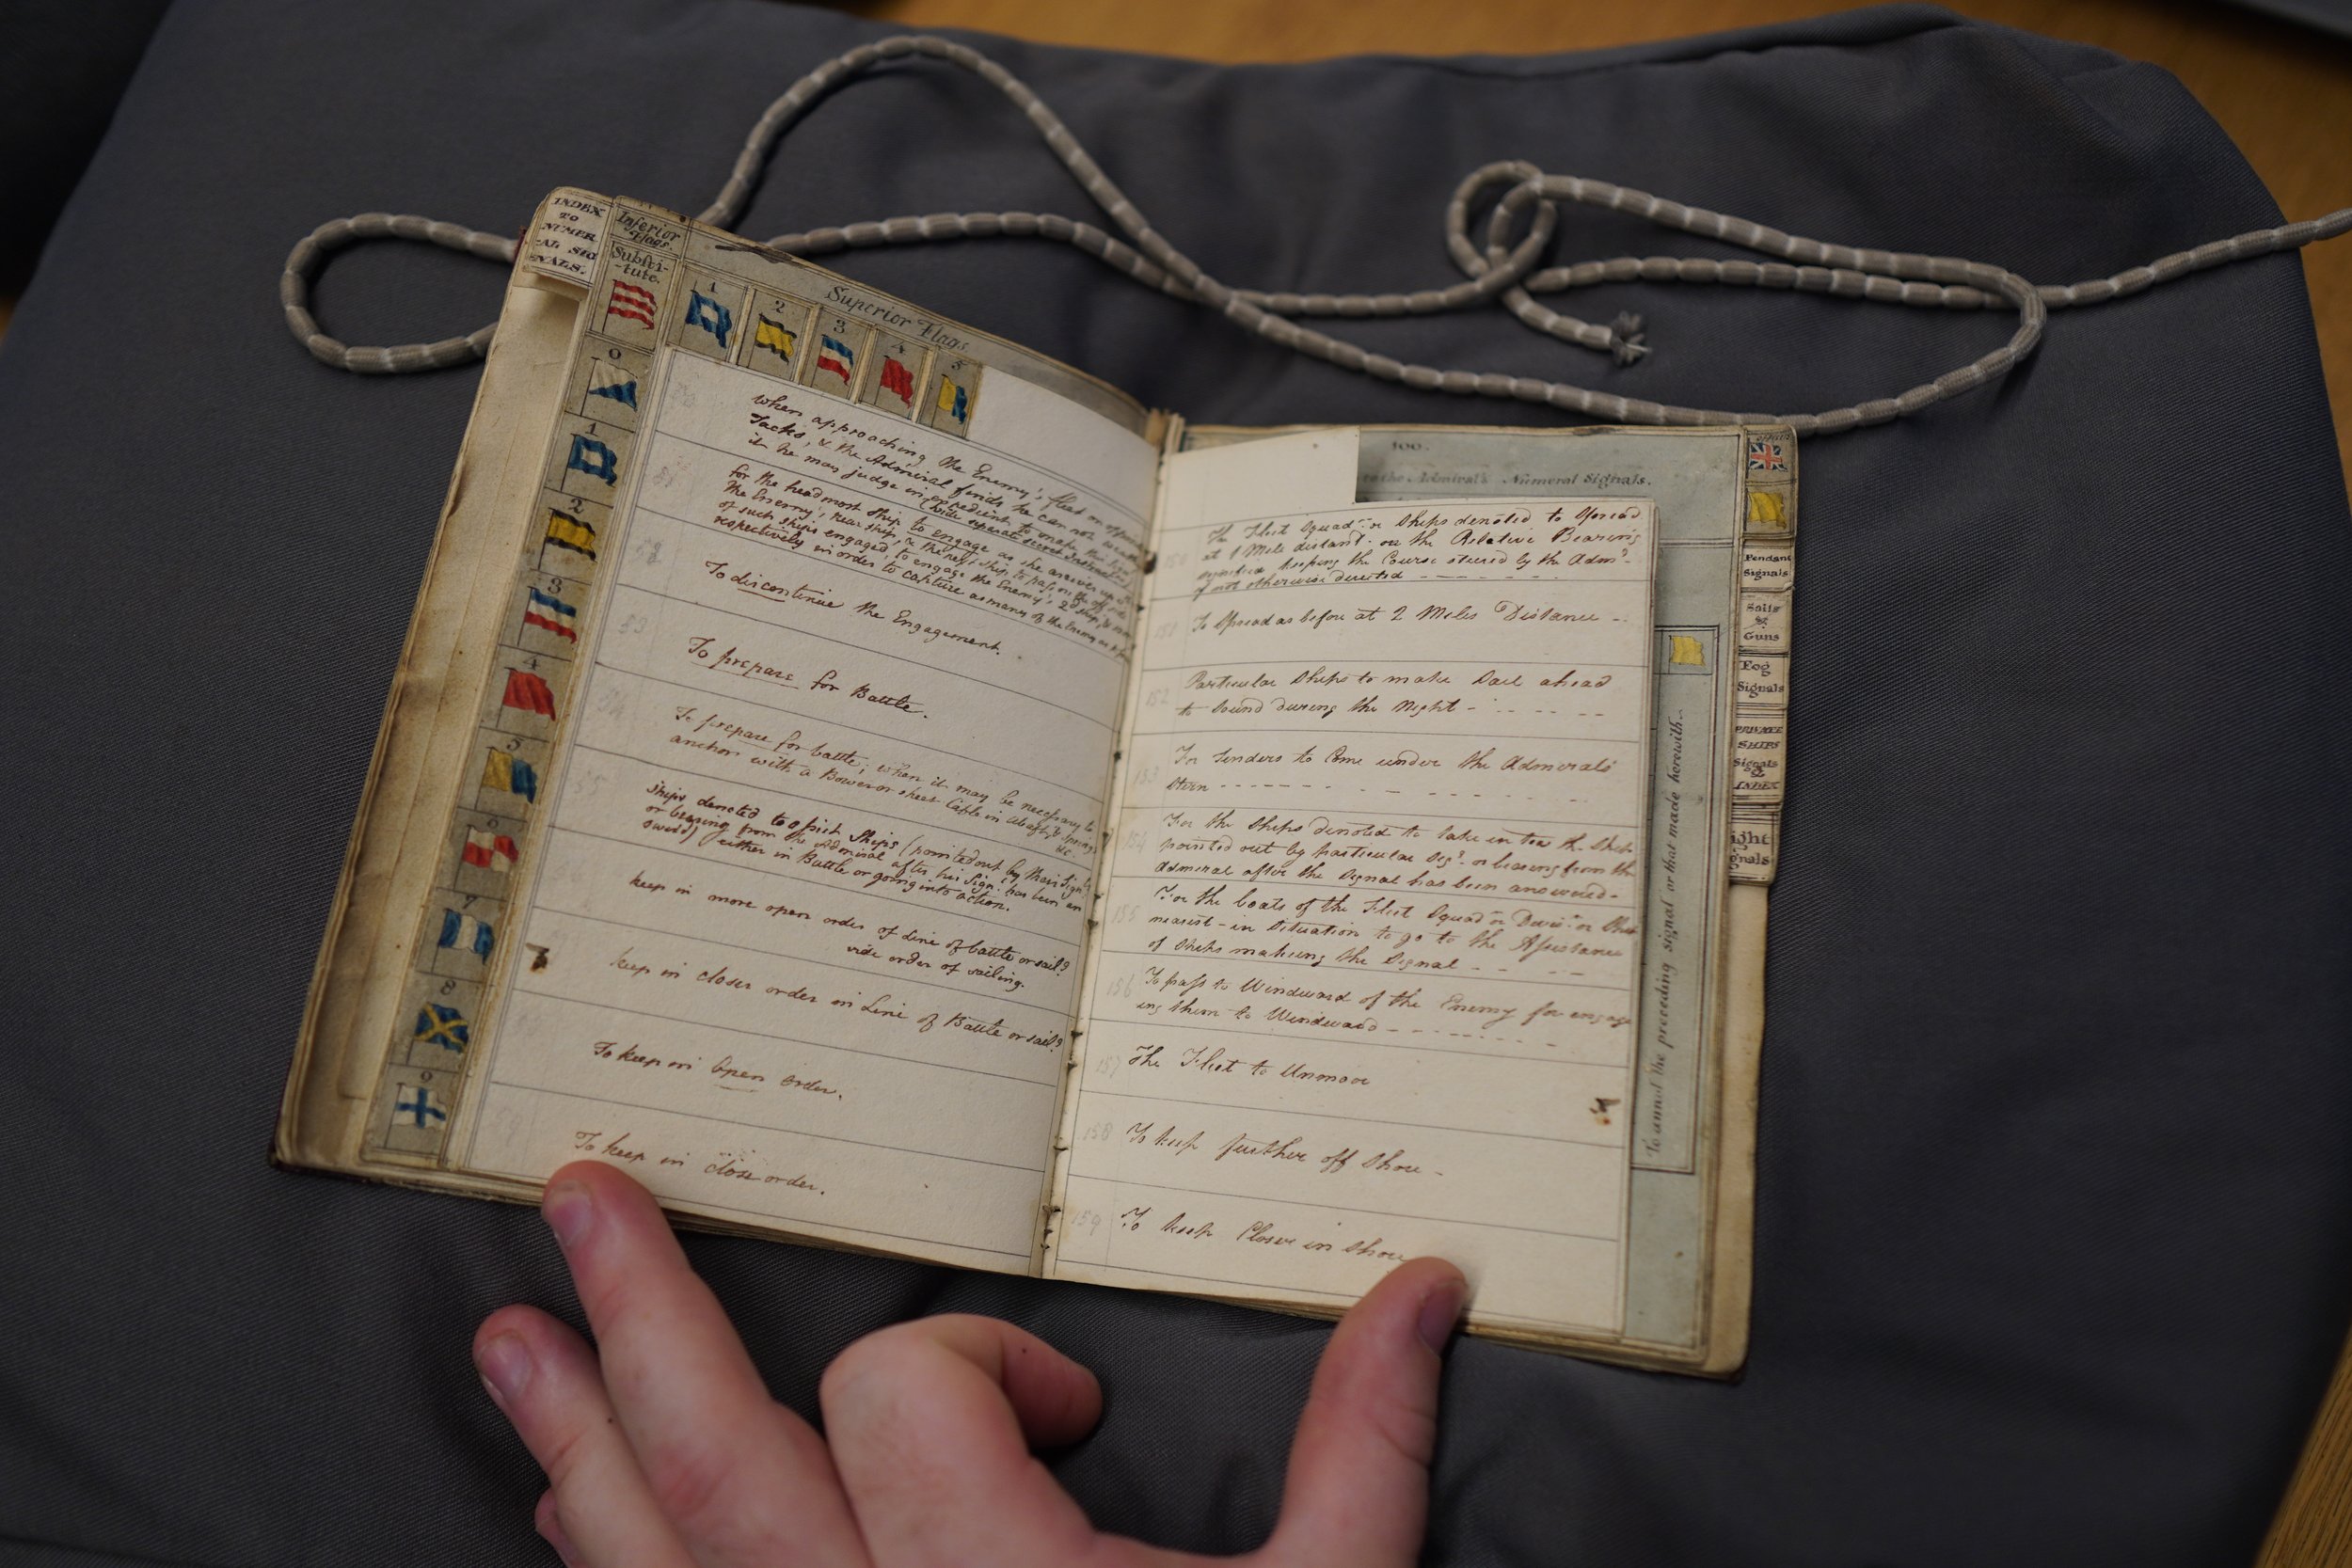 INDEX
TO
NUMER
-AL SIG
NALS.
Inferior
Flags.
Substi-
-tute.
Superior Flags.
1 2 3 4 5
0
1
2
3
4
5
6
7
8
9
when approaching the Enemy's fleet on opposite
Tacks, & the Admiral finds he can not weather
it he may judge inexpedient to make this Signal
(vide separate secret Instruct.
51
for the headmost ship to engage as she arrives up with
the Enemy's rear ship, & the next ship to pass on the off side
of such ships engaged, to engage the Enemy's 2d ship, &
respectively in order to capture as many of the Enemy as
52
To discontinue the Engagement.
53
To prepare for Battle.
54
To prepare for battle; when it may be necessary to
anchor with a Bower or sheet Cable in Abaft & Springs
&c.
55
Ships denoted to assist Ships (pointed out by their Signls
or bearing from the Admiral after his Sign. has been an
swerd) either in Battle or going into action.
keep in more open order of Line of battle or sail?
vide order of sailing.
keep in closer order in Line of Battle or sail?
To keep in open order.
59
To keep in close order.
100.
the Admiral's Numeral Signals.
150 The Fleet Squadn or Ships denoted to Spread
at 1 Mile distant. on the Relative Bearing
keeping the Course steered by the Adml
if not otherwise directed
151 To Spread as before at 2 Miles Distance
152 Particular Ships to make Sail ahead
to Sound during the Night
153 For Tenders to Come under the Admirals
Stern
154 For the Ships denoted to take in tow the Ships
pointed out by particular Sigl. or bearing from the
Admiral after the Signal has been answered-
155 For the boats of the Fleet Squadn or Divisn or Ships
nearest - in Situation to go to the Assistance
of Ships making the Signal
156 To pass to Windward of the Enemy for engag
ing them to Windward
157 The Fleet to Unmoor
158 To keep further off Shore -
159 To keep Closer in Shore
To annul the preceding signal or that made herewith.
Pendant
Signals
Sails
&
Guns
Fog
Signals
PRIVATE
SHIPS
Signals
&
INDEX
ight
gnals